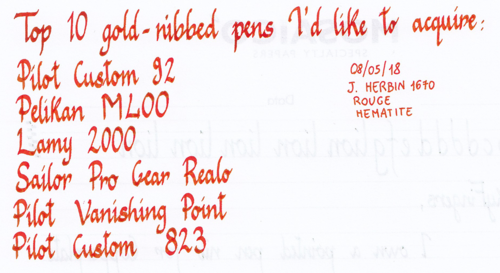 Top 10 gold-nibbed pens I'd like to acquire:
Pilot Custom 92
Pelikan M400
Lamy 2000
Sailor Pro Gear Realo
Pilot Vanishing Point
Pilot Custom 823
08/05/18
J. HERBIN 1670
ROUGE
HEMATITE